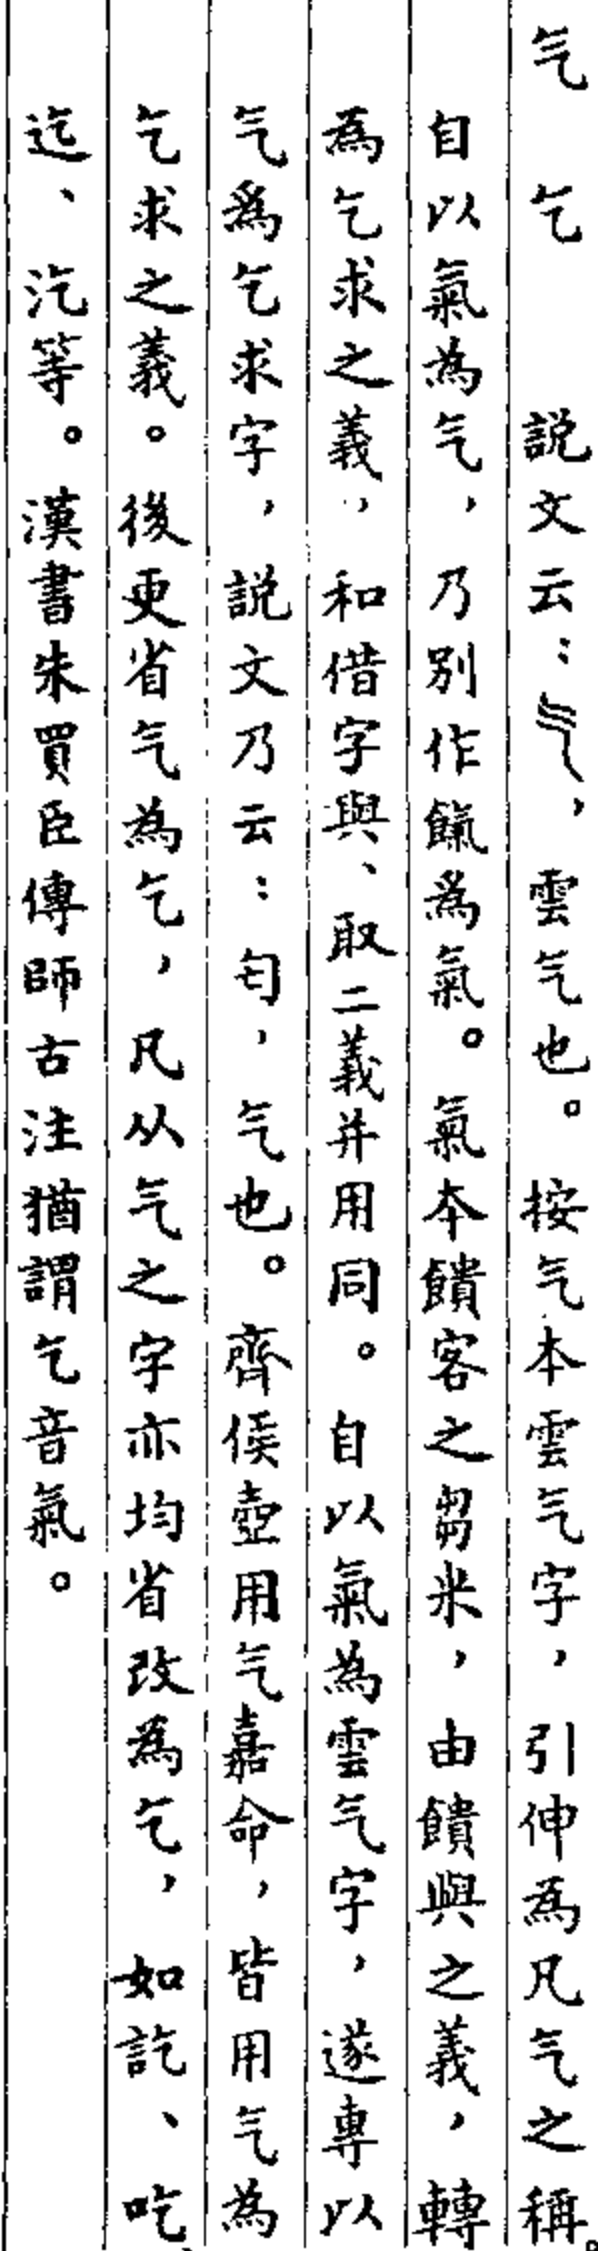 气 乞 説文云：气，雲气也。按气本雲气字，引伸為凡气之稱。
自以氣為气，乃别作餼為氣。氣本饋客之芻米，由饋與之義，轉
為乞求之義，和借字與、取二義并用同。自以氣為雲气字，遂專以
气為乞求字，説文乃云：匄，气也。齊侯壺用气嘉命，皆用气為
乞求之義。後更省气為乞，凡从气之字亦均省改為乞，如訖、吃、
迄、汔等。漢書朱買臣傳師古注猶謂乞音氣。